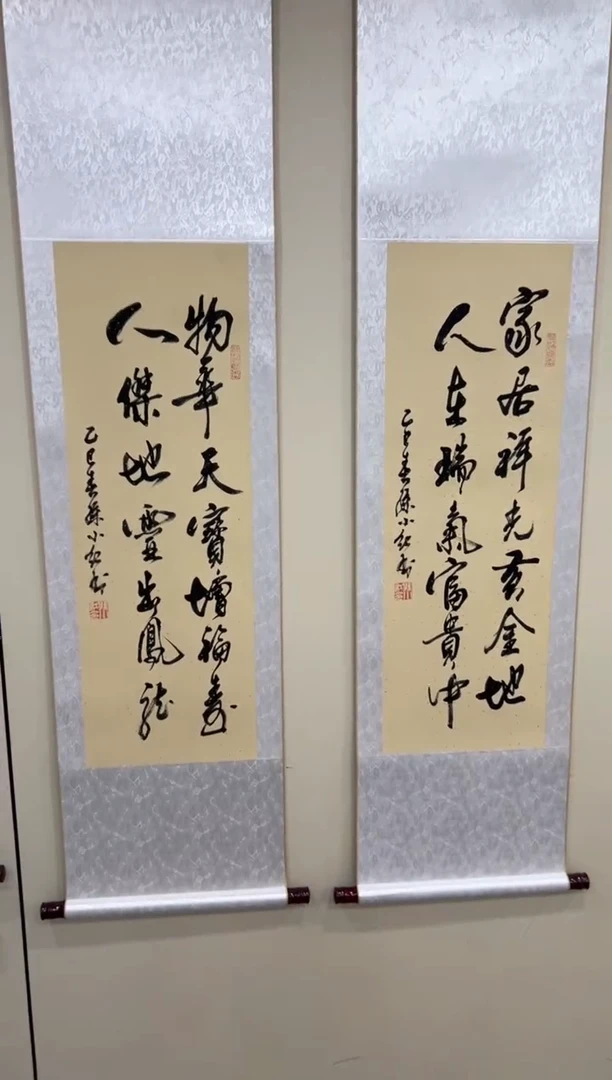 家居祥光黃金地
人在瑞氣富貴中
乙巳春孫小
物華天寶增福壽
人傑地靈出鳳龍
乙巳春孫小